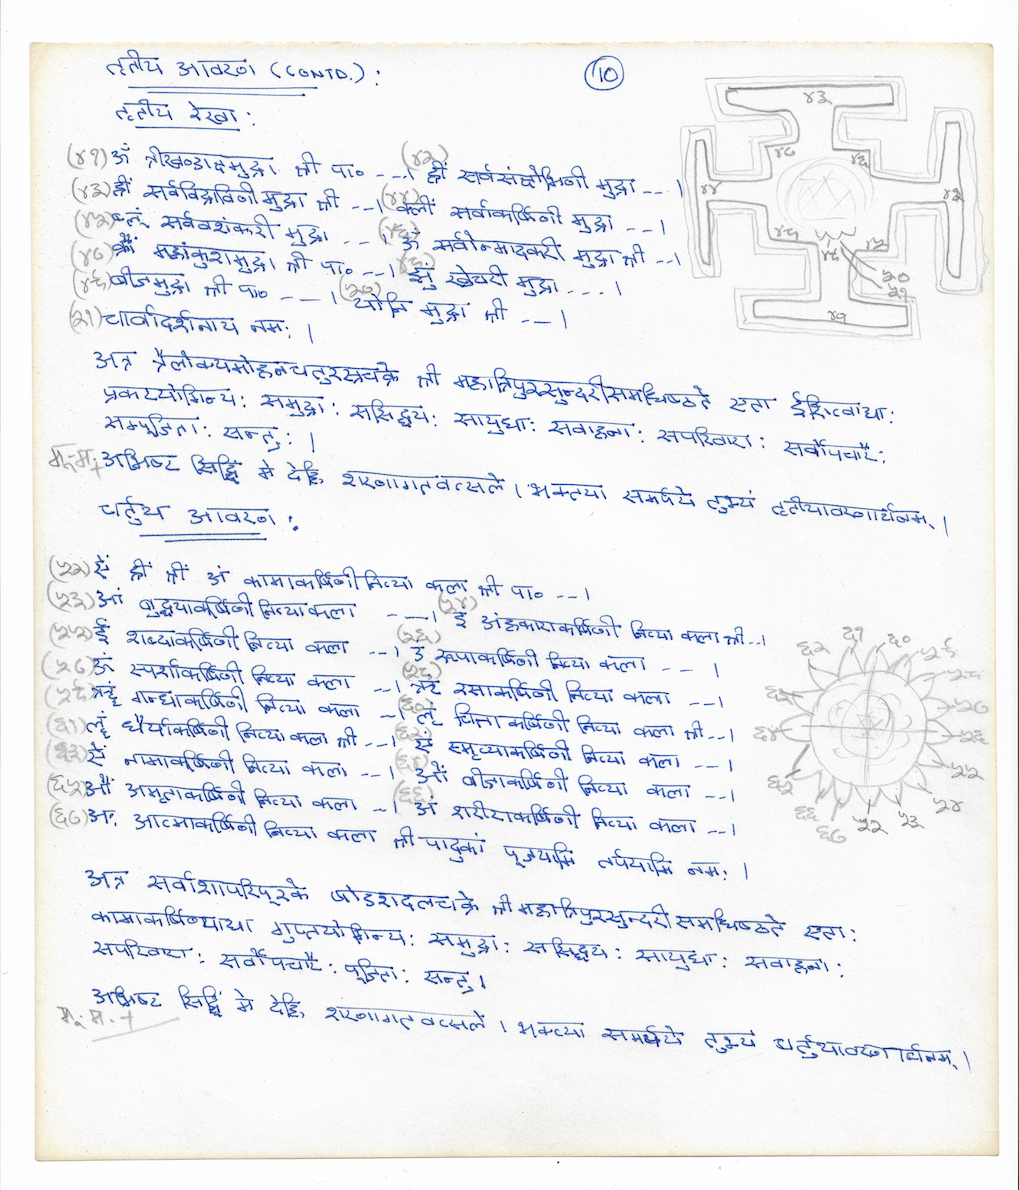 तृतीय आवरण (CONTD.) :
10
तृतीय रेखा :
(४१) अं त्रीखण्डाद्यमुद्रा श्री पा० --- । (४२) ह्रीं सर्वसंक्षोभिणी मुद्रा --- ।
(४३) ह्रीं सर्वविद्राविणी मुद्रा श्री -- । (४४) क्लीं सर्वाकर्षिणी मुद्रा -- ।
(४५) ब्लूं सर्ववशंकरी मुद्रा -- । (४६) सर्वोन्मादकरी मुद्रा श्री -- ।
(४७) क्रों महांकुशामुद्रा श्री पा० --- । (४८) खेचरी मुद्रा --- ।
(४९) बीजमुद्रा श्री पा० --- । (५०) योनि मुद्रा श्री -- ।
(५१) चार्वादर्शनाय नमः ।
अत्र त्रैलोक्यमोहनचतुरस्त्रचक्रे श्री महात्रिपुरसुन्दरीसमधिष्ठते एता ईशित्वाद्याः
प्रकटयोगिन्यः समुद्राः ससिद्धयः सायुधाः सवाहनाः सपरिवाराः सर्वोपचारैः
सम्पूजिताः सन्तुः ।
अभिष्ट सिद्धिं मे देहि, शरणागतवत्सले । भक्त्या समर्पये तुभ्यं तृतीयावरणार्चनम् ।
चर्तुथ आवरण :
(५२) ऐं ह्रीं श्रीं अं कामाकर्षिणी नित्या कला श्री पा० -- ।
(५३) आं बुद्धयाकर्षिणी नित्या कला -- । (५४) इं अंहकाराकर्षिणी नित्या कला श्री -- ।
(५५) ईं शब्दाकर्षिणी नित्या कला -- । (५६) उं रूपाकर्षिणी नित्या कला -- ।
(५७) ऊं स्पर्शाकर्षिणी नित्या कला -- । (५८) ऋं रसाकर्षिणी नित्या कला -- ।
(५९) ॠं गन्धाकर्षिणी नित्या कला -- । (६०) लृं चित्ताकर्षिणी नित्या कला श्री -- ।
(६१) लॄं धैर्याकर्षिणी नित्या कला श्री -- । (६२) एं स्मृत्याकर्षिणी नित्या कला -- ।
(६३) ऐं नामाकर्षिणी नित्या कला -- । (६४) ओं बीजाकर्षिणी नित्या कला -- ।
(६५) औं अमृताकर्षिणी नित्या कला -- । (६६) अं शरीराकर्षिणी नित्या कला -- ।
(६७) अः आत्माकर्षिणी नित्या कला श्री पादुकां पूजयामि तर्पयामि नमः ।
अत्र सर्वाशापरिपूरके षोडशदलचक्रे श्री महात्रिपुरसुन्दरी समधिष्ठते एताः
कामाकर्षिण्याद्या गुप्तयोगिन्यः समुद्राः ससिद्धयः सायुधाः सवाहनाः
सपरिवाराः सर्वोपचारैः पूजिताः सन्तु ।
अभिष्ट सिद्धिं मे देहि, शरणागतवत्सले । भक्त्या समर्पये तुभ्यं चर्तुथावरणार्चनम् ।
४३
४७
४६
४४
४२
४५
४९
५२
५०
५१
४१
६१
६०
५९
६२
५८
६३
५७
६४
५६
६५
५५
६६
६७
५२
५३
५४